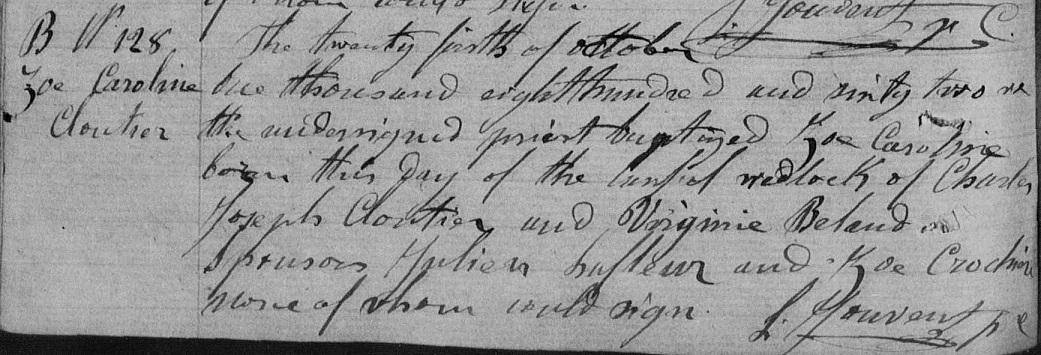 of whom could sign. J. Jouvent p C.
B N° 128.
Zoe Caroline
Cloutier
The twenty sixth of october
one thousand eighthundred and sixty two we
the undersigned priest baptized Zoe Caroline
born this day of the lawful wedlock of Charles
Joseph Cloutier and Virginie Beland.
Sponsors Julien and Zoe
none of whom could sign. J. Jouvent p C